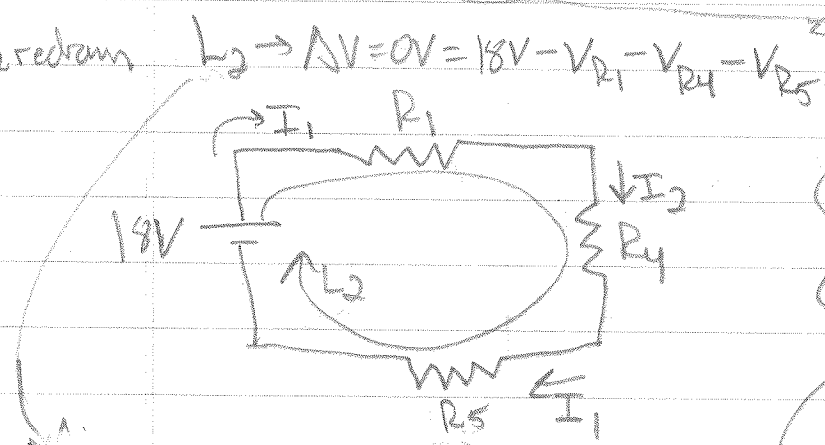 redraw L2 → ΔV = 0V = 18V - VR1 - VR4 - VR5
I1 R1
I2
18V R4
L2
R5 I1